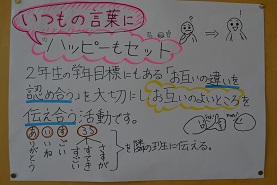 いつもの言葉に
ハッピーもセット
2年生の学年目標にもある「お互いの違いを
認め合う」を大切にし「お互いのよいところを
伝え合う」活動です。
あ い す 33
ありがとう
いいね
すごい
すてき
さすが
を隣の子に伝える。